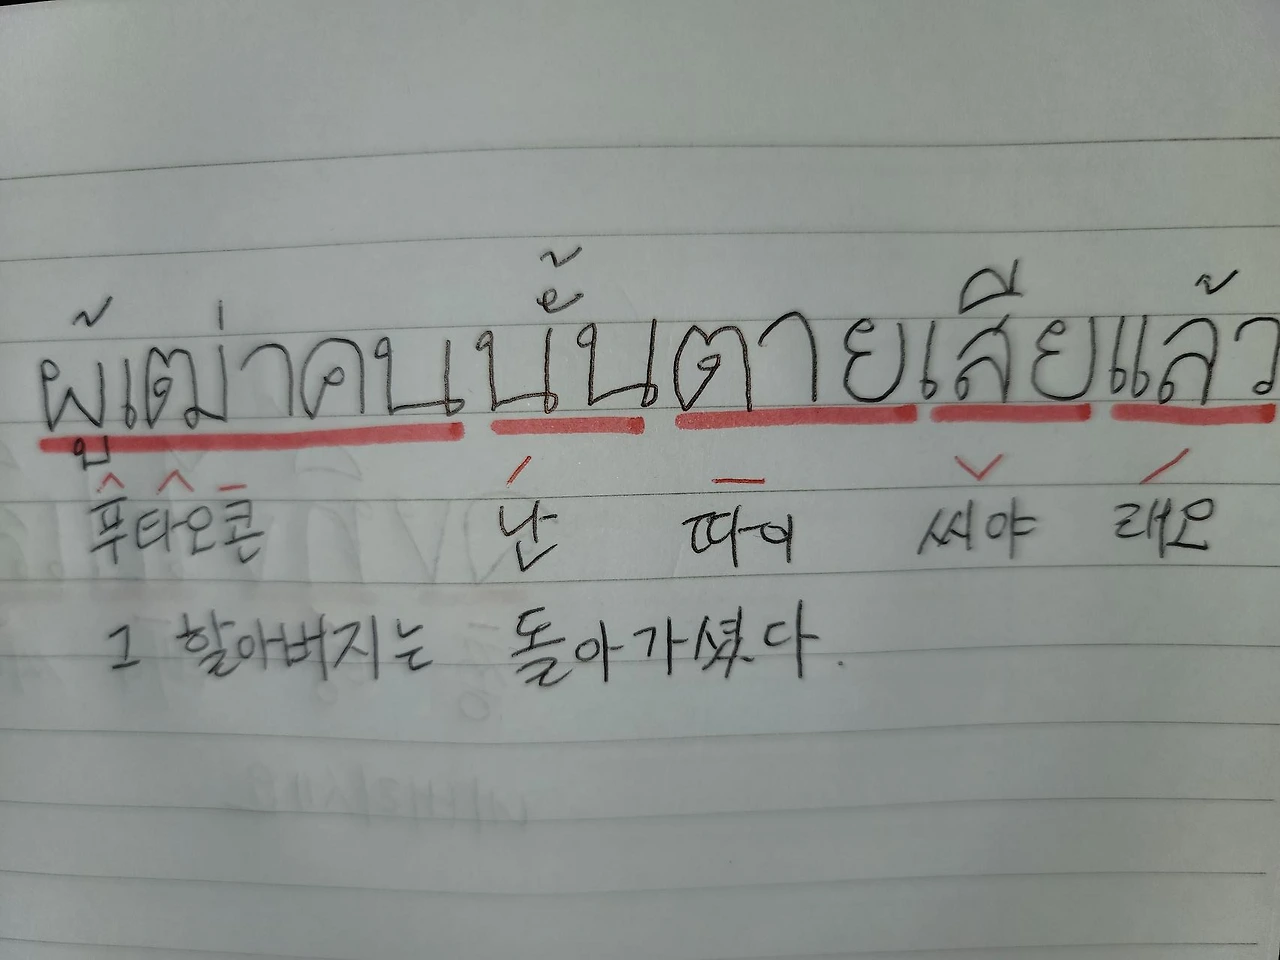 ผู้เฒ่าคนนั้นตายเสียแล้ว
푸타오콘 난 따이 씨야 래오
그 할아버지는 돌아가셨다.